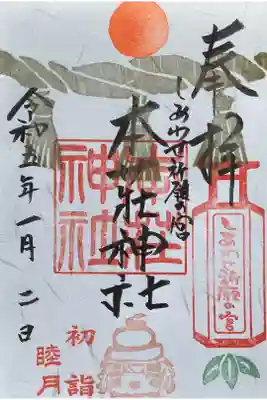 奉拝
しあわせ祈願の宮
本荘神社
令和五年一月二日
しあわせ祈願の宮
神社
初詣
睦月